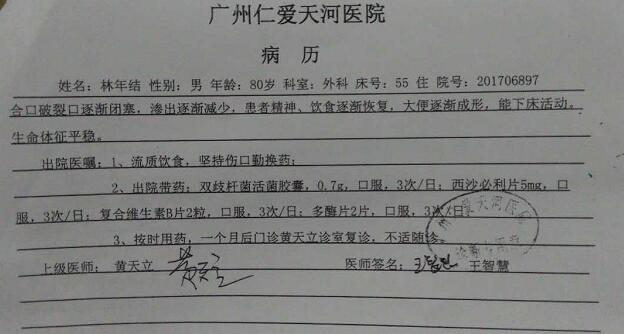 广州仁爱天河医院
病 历
姓名：林年结 性别：男 年龄：80岁 科室：外科 床号：55 住 院号：201706897
合口破裂口逐渐闭塞，渗出逐渐减少，患者精神、饮食逐渐恢复，大便逐渐成形，能下床活动。
生命体征平稳。
出院医嘱：1、流质饮食，坚持伤口勤换药；
2、出院带药：双歧杆菌活菌胶囊，0.7g，口服，3次/日；西沙必利片5mg，口
服，3次/日；复合维生素B片2粒，口服，3次/日；多酶片2片，口服，3次/日
3、按时用药，一个月后门诊黄天立诊室复诊，不适随诊。
州仁爱天河医院
上级医师：黄天立 黄天立 医师签名：王智慧 王智慧